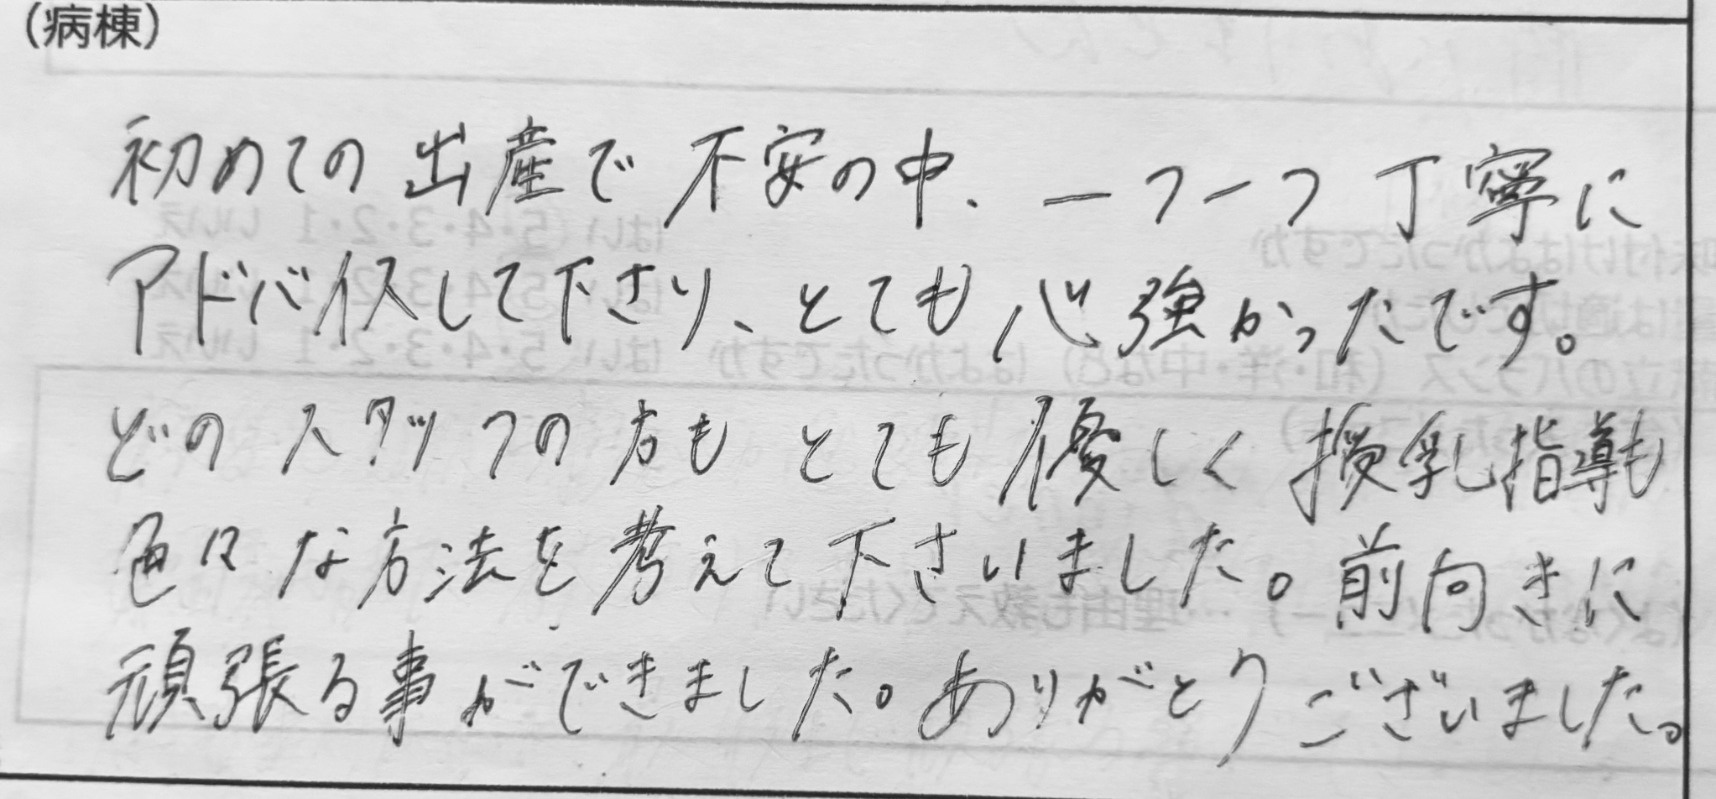 (病棟)
初めての出産で不安の中、一つ一つ丁寧に
アドバイスして下さり、とても心強かったです。
どのスタッフの方もとても優しく授乳指導も
色々な方法を考えて下さいました。前向きに
頑張る事ができました。ありがとうございました。